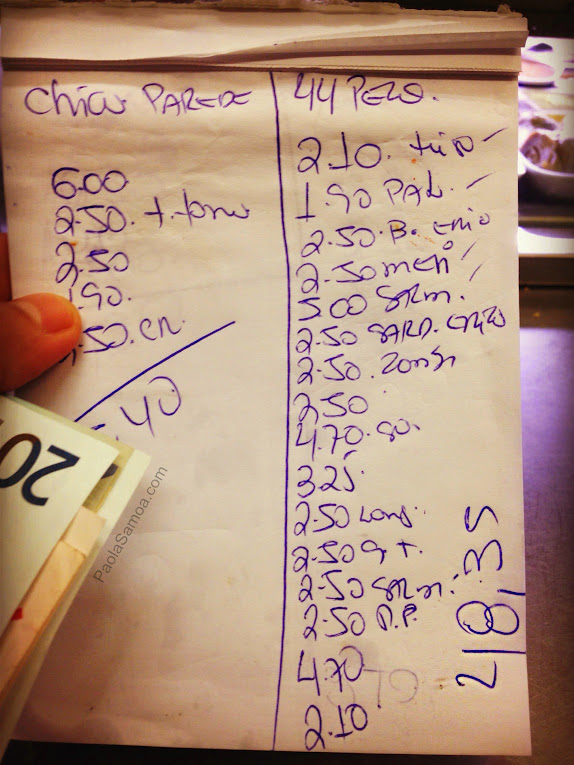 Chica PAREDE
6.00
2.50. t.
2.50
1.90.
.50.
.40
44 PELO.
2.10.
1.90 PAL.
2.50. B.
2.50
5.00 SRM.
2.50 SARD.
2.50.
2.50
4.70. so.
3.25.
2.50 Long.
2.50 G T.
2.50 SRM.
2.50 P.P.
4.70
2.10
218,35
20
PaolaSamoa.com